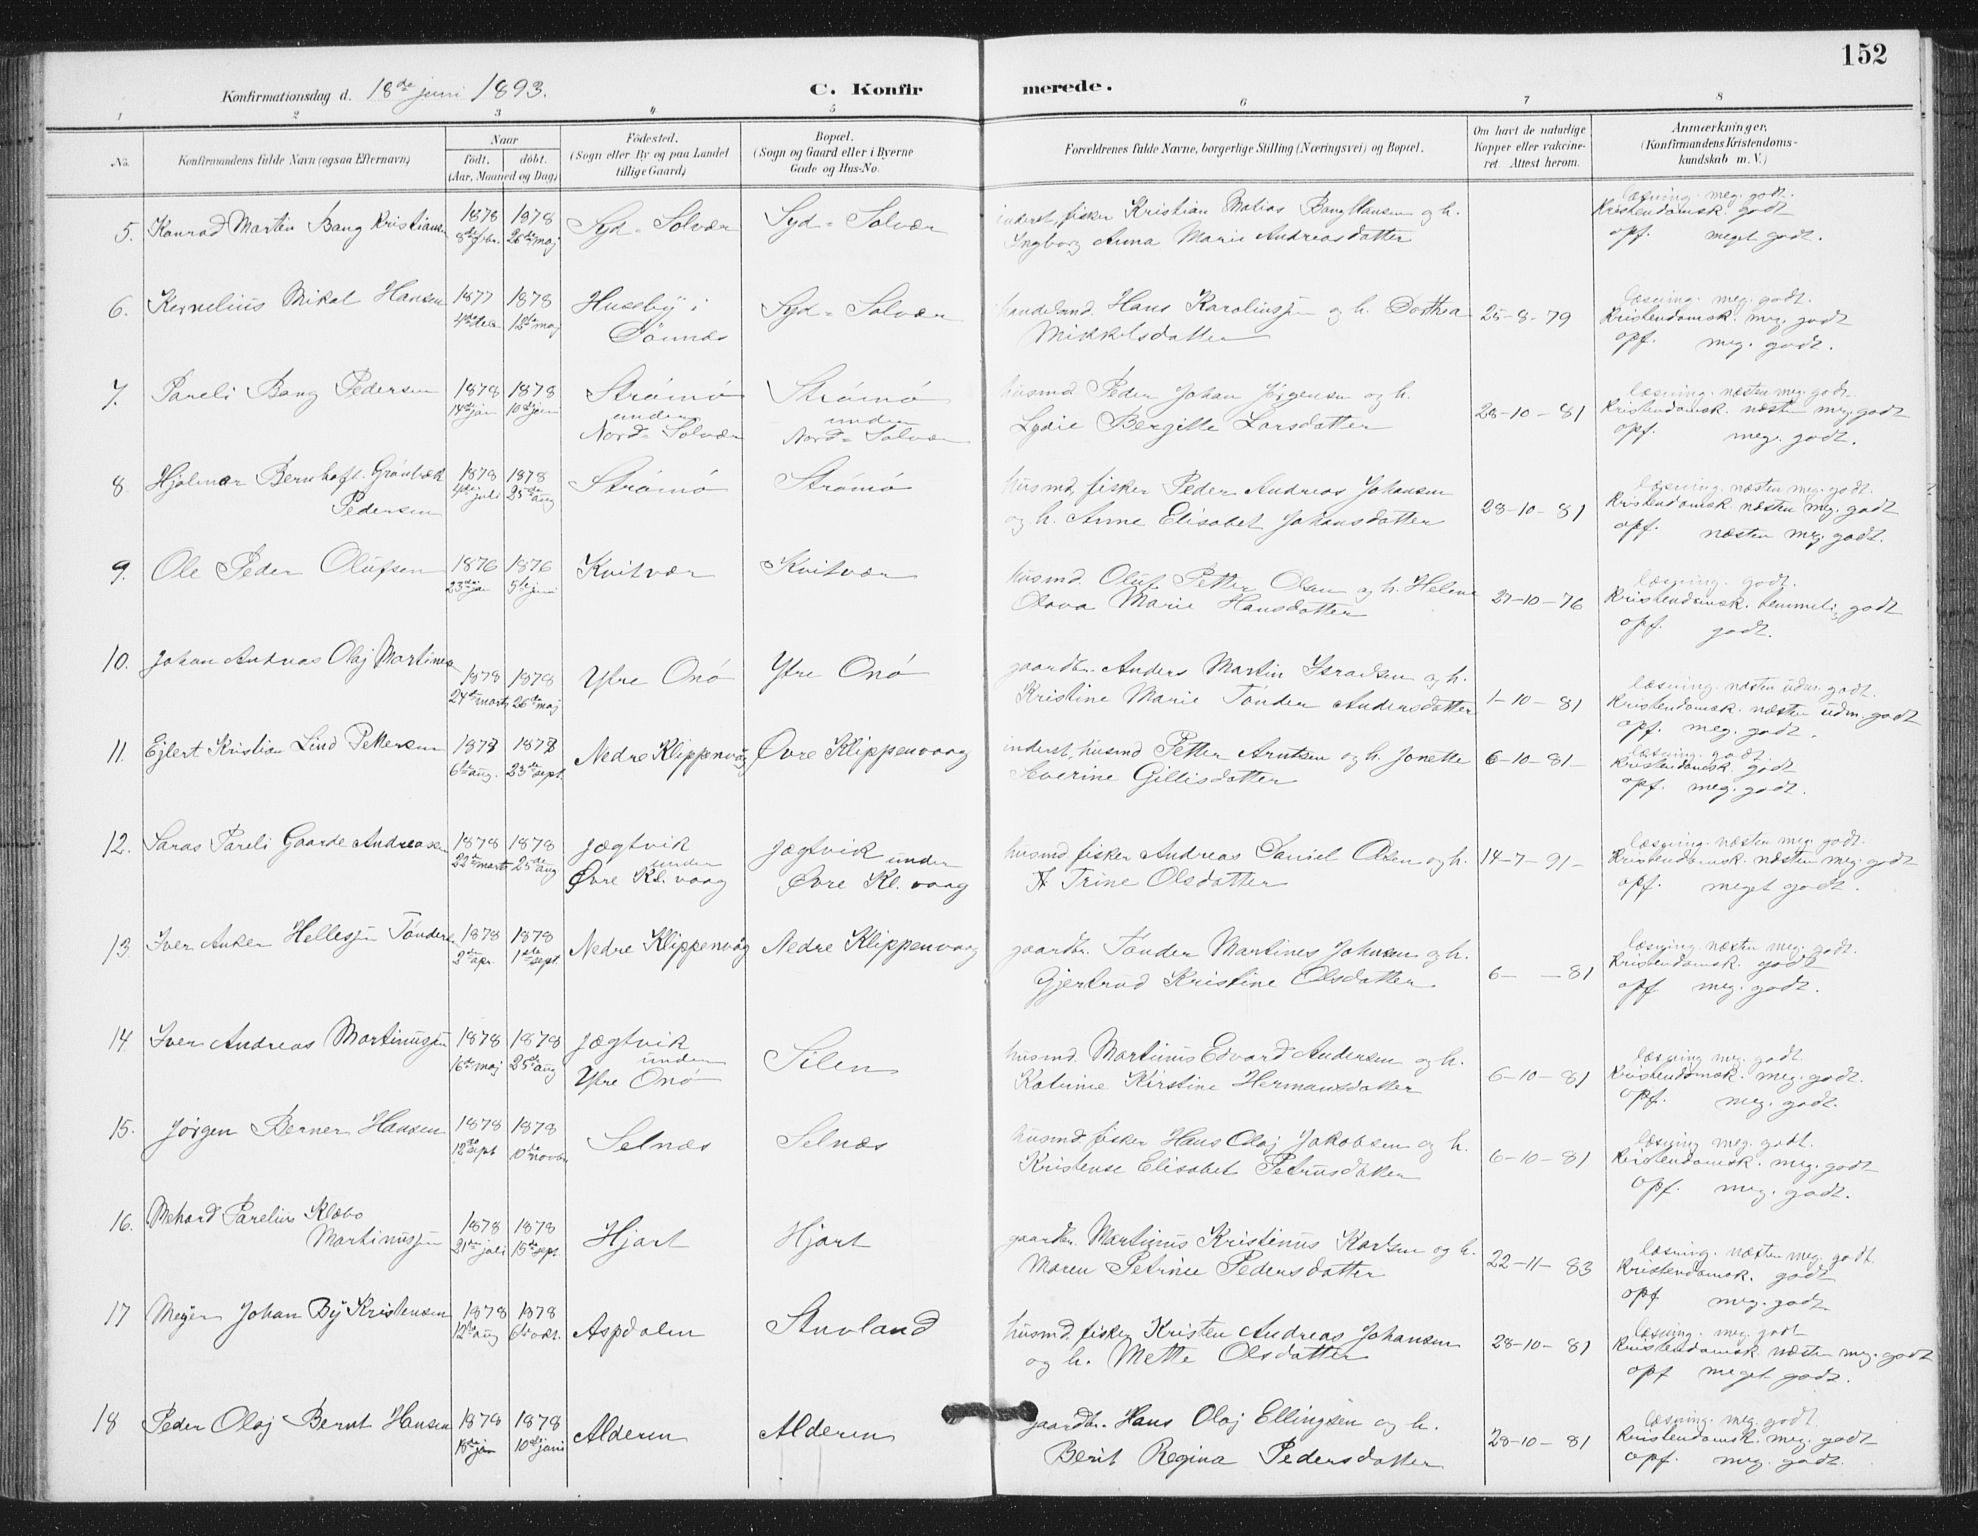 152
Konfirmationsdag d. 18de juni 1893. C. Konfirmerede.
1 2 3 4 5 6 7 8
No. Konfirmandens fulde Navn (ogsaa Efternavn) Naar født. døbt. (Aar, Maaned og Dag) Fødested. (Sogn eller By og paa Landet tillige Gaard) Bopæl. (Sogn og Gaard eller i Byerne Gade og Hus-No. Forældrenes fulde Navne, borgerlige Stilling (Næringsvei) og Bopæl. Om havt de naturlige Kopper eller vakcineret. Attest herom. Anmærkninger. (Konfirmandens Kristendomskundskab m. V.)
5. Konrad Martin Bang Kristiansen 1878 8de fbr. 1878 26de maj Syd-Solvær Syd-Solvær inderst, fisker Kristian Matias Bang Hansen og h. læsning. meg. godt.
Ingborg Anna Marie Andreasdatter Kristendomsk. godt
opf. meget godt.
6. Kornelius Mikal Hansen 1877 4de dec 1878 12te maj Husby i Dønnæs Syd-Solvær Hans Karoliussen og h. Dorthea 25-8-79 læsning. meg. godt.
Mikkelsdatter Kristendomsk. meg. godt
opf. meg. godt.
7. Pareli Bang Pedersen 1878 14de jan 1878 10de juni Strømø under Nord-Solvær Strømø under Nord-Solvær husmd. Peder Johan Jørgensen og h. 28-10-81 læsning. næsten meg. godt.
Lydie Bergitte Larsdatter Kristendomsk. næsten meg. godt
opf. meg. godt.
8. Hjalmar Bernhoft Grønbæk Pedersen 1878 juli 1878 25de aug Strømø Strømø husmd, fisker Peder Andreas Johansen 28-10-81 læsning. næsten meg. godt.
og h. Anne Elisabet Johansdatter Kristendomsk. næsten meg. godt
opf. næsten meg. godt.
9. Ole Peder Olufsen 1876 23de jan 1876 5te juni Kvitvær Kvitvær husmd. Oluf Petter Olsen og h. Helene 21-10-76 læsning. godt.
Olava Marie Hansdatter Kristendomsk. temmeli. godt
opf. godt.
10. Johan Andreas Olaj Martines 1878 24de marts 1878 26de maj Ytre Onø Ytre Onø gaardbr. Anders Martin Israelsen og h. 1-10-81 læsning. næsten udm. godt.
Kristine Marie Tønder Andersdatter Kristendomsk. næsten udm. godt
opf. meg. godt.
11. Ejlert Kristian Lind Pettersen 1877 6te aug. 1877 23de sept. Nedre Klippenvåg Øvre Klippenvaag inderst, husmd Petter Arntsen og h. Jonette 6-10-81- læsning. godt
Severine Gillisdatter Kristendomsk. godt
opf. meg. godt.
12. Saras Pareli Gaarde Andreassen 1878 22de marts 1878 25de aug Jægtvik under Øvre Kl. vaag Jægtvik under Øvre Kl. vaag husmd, fisker Andreas Daniel Olsen og h. 14-7-91- læsning. næsten meg. godt.
A Trine Olsdatter Kristendomsk. næsten meg. godt
opf. meget godt.
13. Iver Anker Hellesen Tønders 1878 2den apr. 1878 1ste sept. Nedre Klippenvåg Nedre Klippenvaag gaardbr. Tønder Martines Johnsen og h. 6- -81 læsning. næsten meg. godt.
Gjertrud Kristine Olsdatter Kristendomsk. godt
opf meg. godt.
14 Iver Andreas Martinussen 1878 16de maj 1878 25de aug Jægtvik under Ytre Onø Silen husmd. Martinus Edvard Andersen og h. 6-10-81 læsning meg. godt.
Katrine Kirstine Hermansdatter Kristendomsk. meg. godt.
opf. meg. godt.
15. Jørgen Berner Hansen 1878 12te sept 1878 10de novbr Selnæs Selnæs husmd, fisker Hans Olaj Jakobsen og h. 6-10-81 læsning meg. godt.
Kristense Elisabet Petrusdatter Kristendomsk. meg. godt
opf. meg. godt.
16. Mehard Parelius Klæbo Martinussen 1878 21de juli 1878 15de sept. Hjart Hjart gaardbr. Martinus Kristinus Karlsen og h. 22-11-83 læsning. næsten meg. godt.
Maren Petrine Pedersdatter Kristendomsk. godt
opf meg. godt.
17 Meyer Johan By Kristensen 1878 12te aug 1878 6te okt. Aspdalen Stuvland husmd, fisker Kristen Andreas Johansen 28-10-81 læsning. meg. godt
og h. Mette Olsdatter Kristendomsk. næsten meg. godt
opf meget godt.
18 Peder Olaj Bernt Hansen 1878 18de jan 1878 10de juni Alderen Alderen gaardbr. Hans Olaj Ellingsen og h. 28-10-81 læsning. meg. godt.
Berit Regina Pedersdatter Kristendomsk. meg. godt
opf. meg. godt.